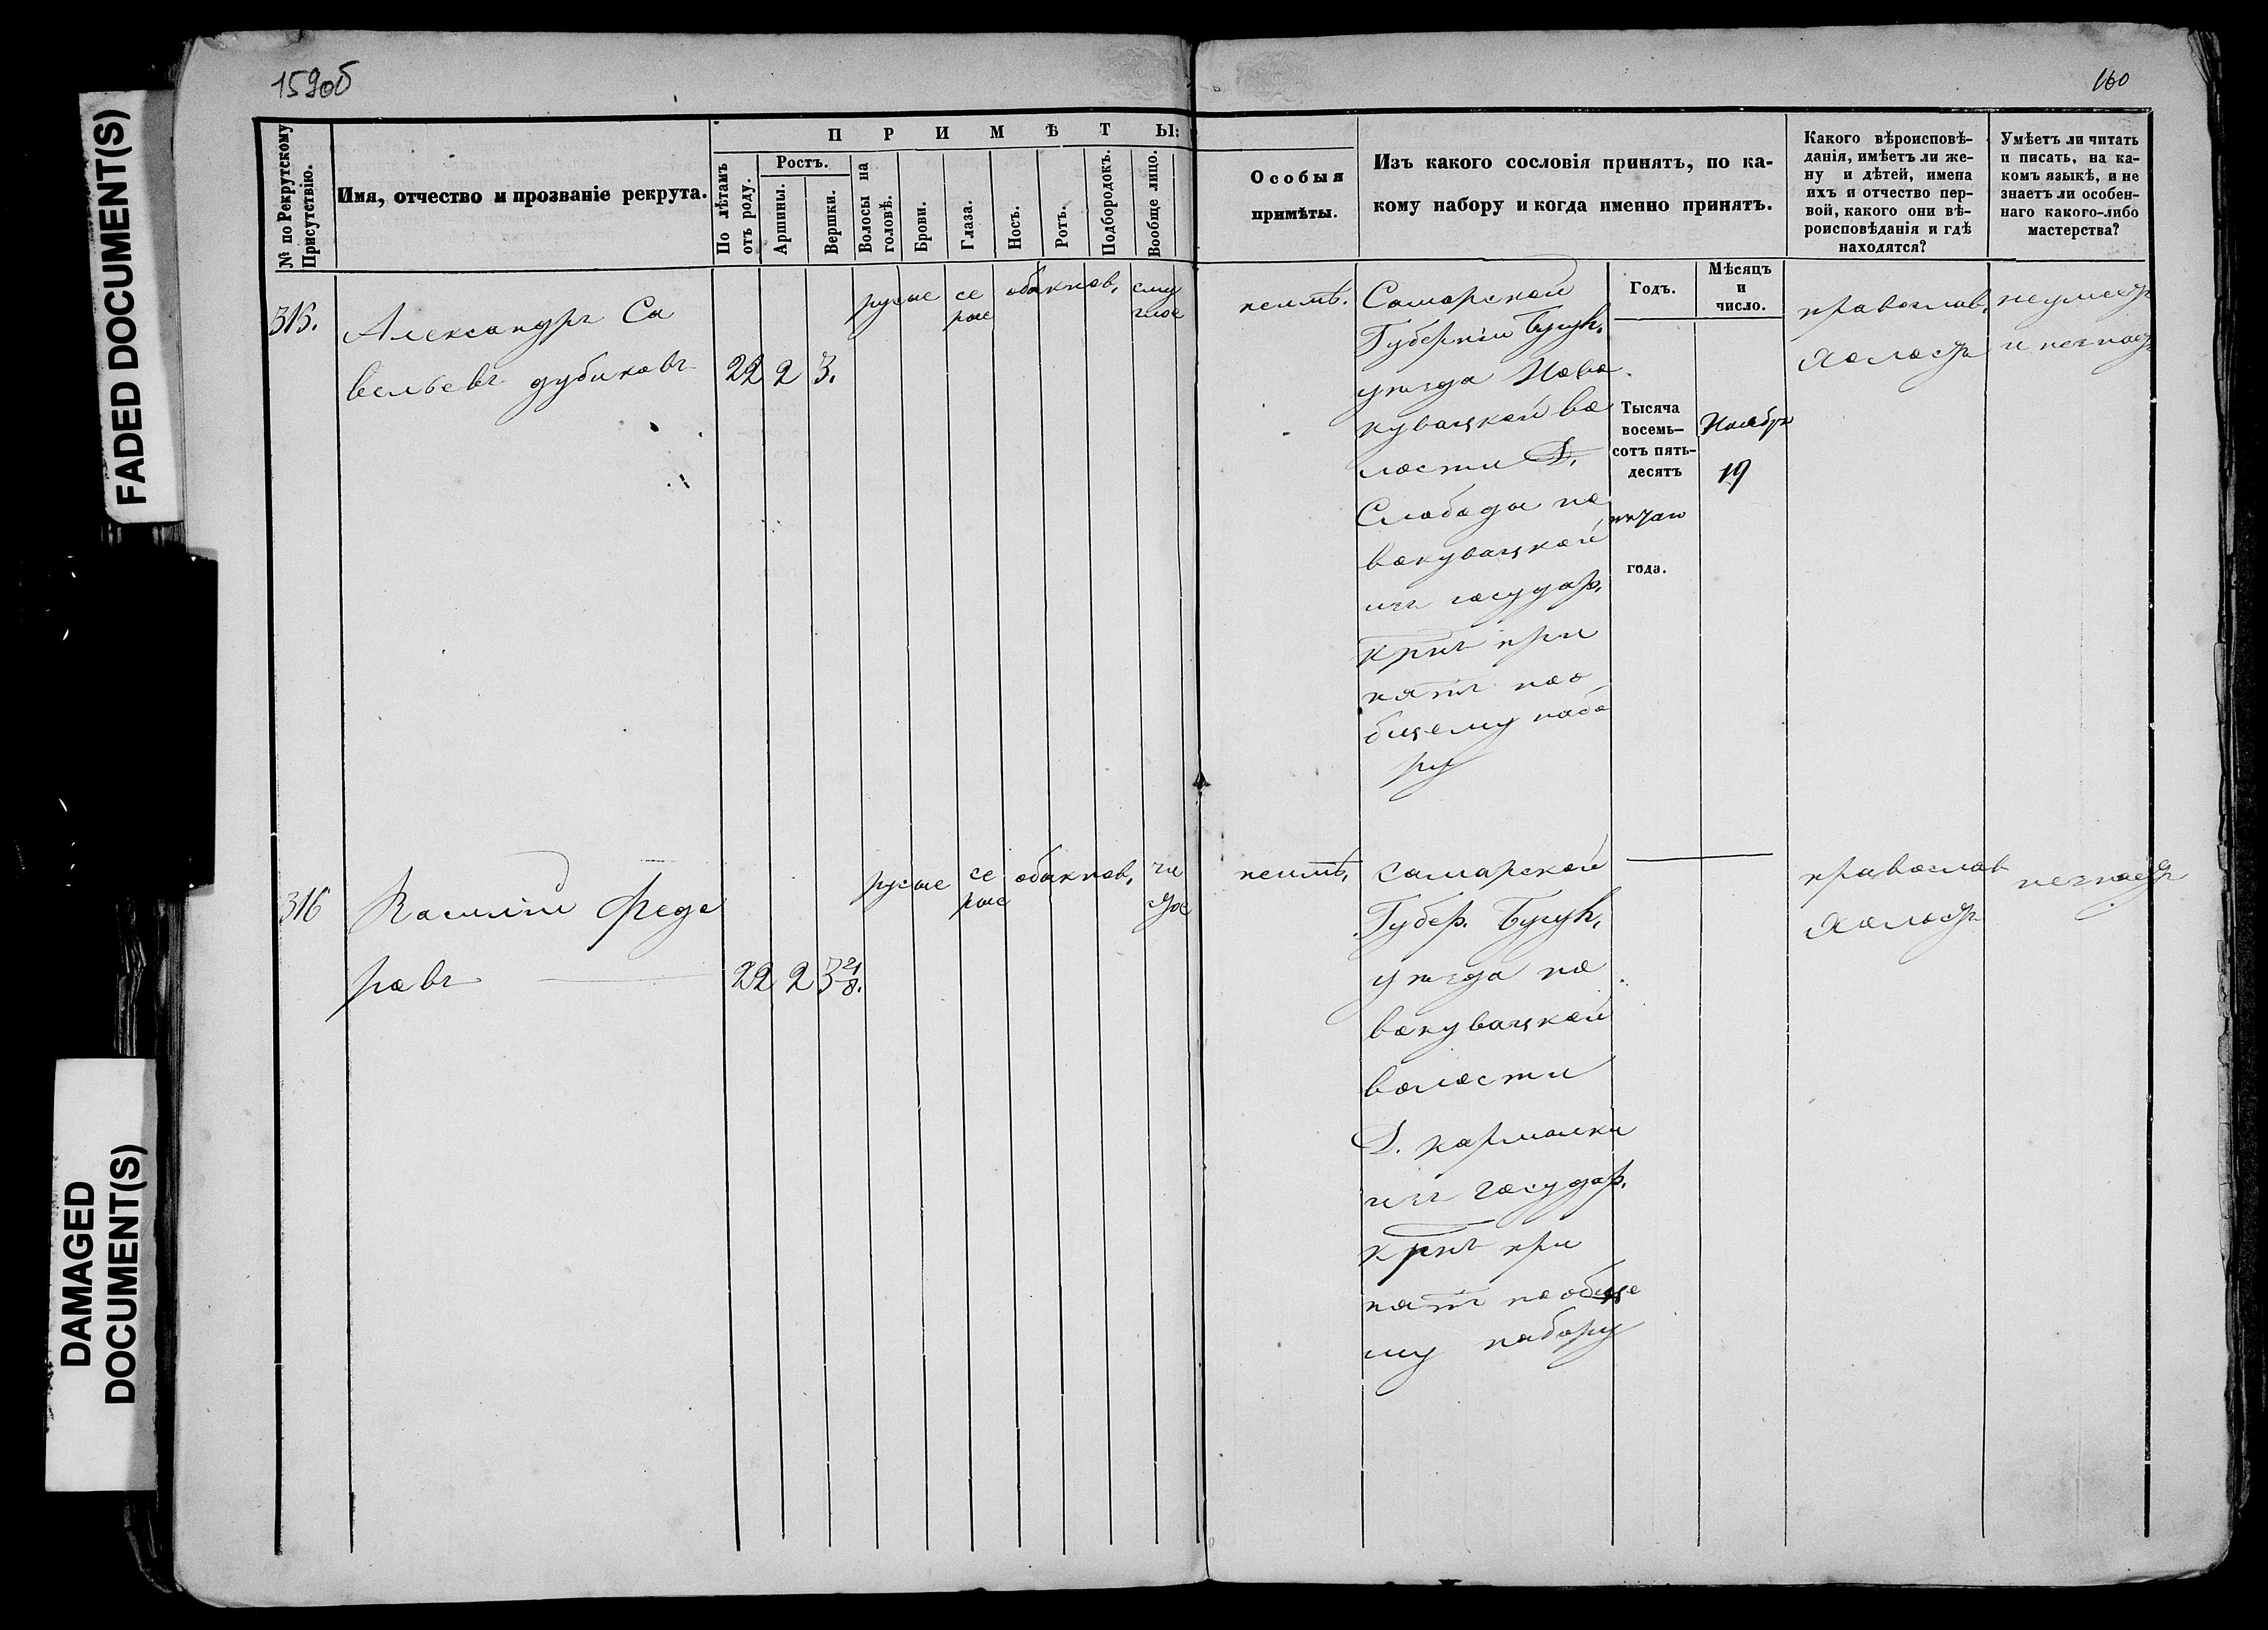 159об
160
FADED DOCUMENT(S)
DAMAGED
DOCUMENT(S)
№ по Рекрутскому
Присутствію.
Имя, отчество и прозваніе рекрута.
ПРИМѢТЫ:
По лѣтамъ
отъ роду.
Ростъ.
Аршины.
Вершки.
Волосы на
головѣ.
Брови.
Глаза.
Носъ.
Ротъ.
Подбородокъ.
Вообще лицо.
Особыя
примѣты.
Изъ какого сословія принятъ, по ка-
кому набору и когда именно принятъ.
Какого вѣроисповѣ-
данія, имѣетъ ли же-
ну и дѣтей, имена
ихъ и отчество пер-
вой, какого они вѣ-
роисповѣданія и гдѣ
находятся?
Умѣетъ ли читать
и писать, на ка-
комъ языкѣ, и не
знаетъ ли особен-
наго какого-либо
мастерства?
315.
Александръ Са
вельевъ дубиковъ
22 2 3.
русые
се
рые
обыкнов.
сму
глое
неимѣ.
Самарской
Губерніи Бугук.
уѣзда Ново
кувацкой во
лости Д.
Слободы но
вокувацкой
изъ государ.
крнъ при
нятъ поо
бщему набо
ру
Годъ.
Мѣсяцъ
и
число.
Тысяча
восемь-
сотъ пять-
десятъ
года.
Ноября
19
православ.
холостъ
неумеетъ
и незнаетъ
316
Василій Федо
ровъ
22 2 3
русые
се
рые
обыкнов.
чи
стое
неимѣ.
самарской
Губер. Бугук.
уѣзда но
вокувацкой
волости
Д. кармалки
изъ государ.
крнъ при
нятъ пообще
му набору
православ
холостъ
незнаетъ